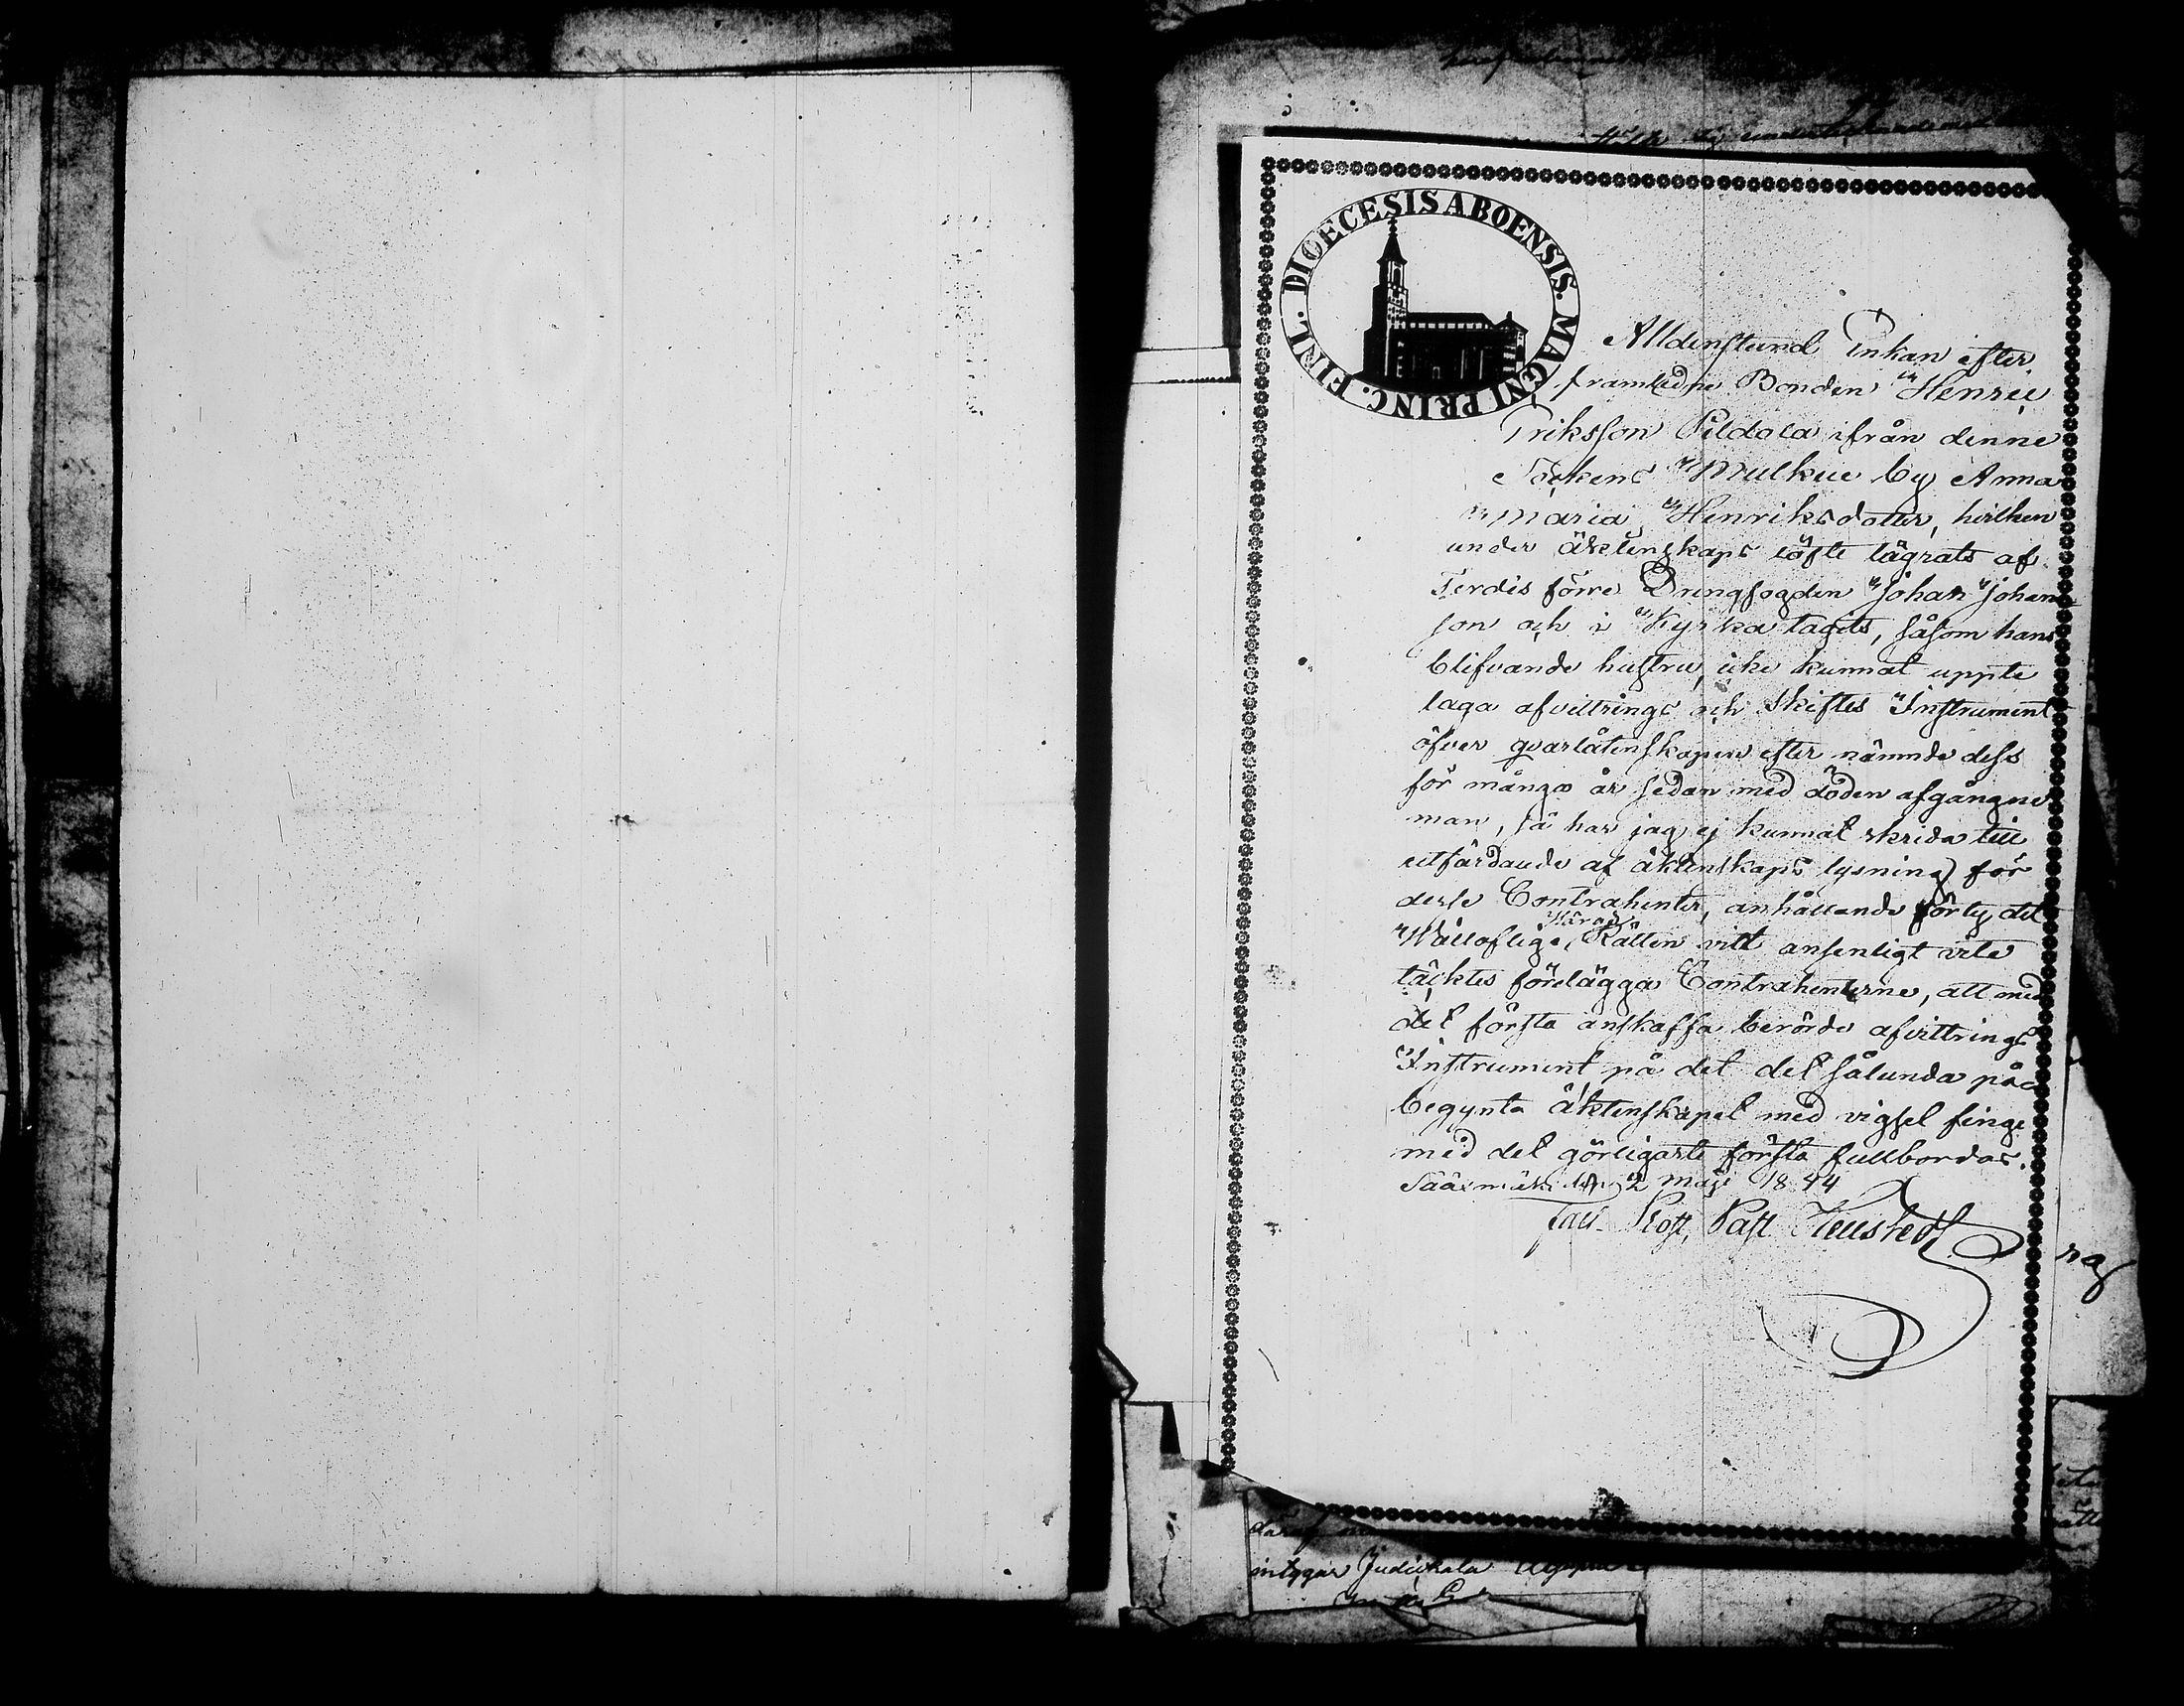 DIOECESIS ABOENSIS. MAGNI PRINC. FINL.
Alldenstund Enkan efter
framledne Bonden Henric
Eriksson Pildala ifrån denne
Sockens Mulkue by Anna
Maria Henriksdotter, hvilken
under äktenskaps löfte lägrats af
Ferdis förre Drengfogden Johan Johans
son och i Kyrka tagits, såsom hans
blifvande hustru, icke kunnat uppte
laga afvittrings och Skiftes Instrument
öfver qvarlåtenskapen efter nämnde dess
för många år sedan med döden afgångne
man, så har jag ej kunnat skrida till
utfärdande af äktenskaps lysning för
desse Contrahenter, anhållande förty det
Härads
Wälloflige Rätten vitt ansenligt vite
täcktes förelägga Contrahenterne, att med
det första anskaffa berörde afvittrings
Instrument på det det sålunda på
begynta äktenskapet med vigsel finge
med det görligaste första fullbordas.
Sääxmäki den 2 Maji 1844
Past.
rag
intygar Judickala